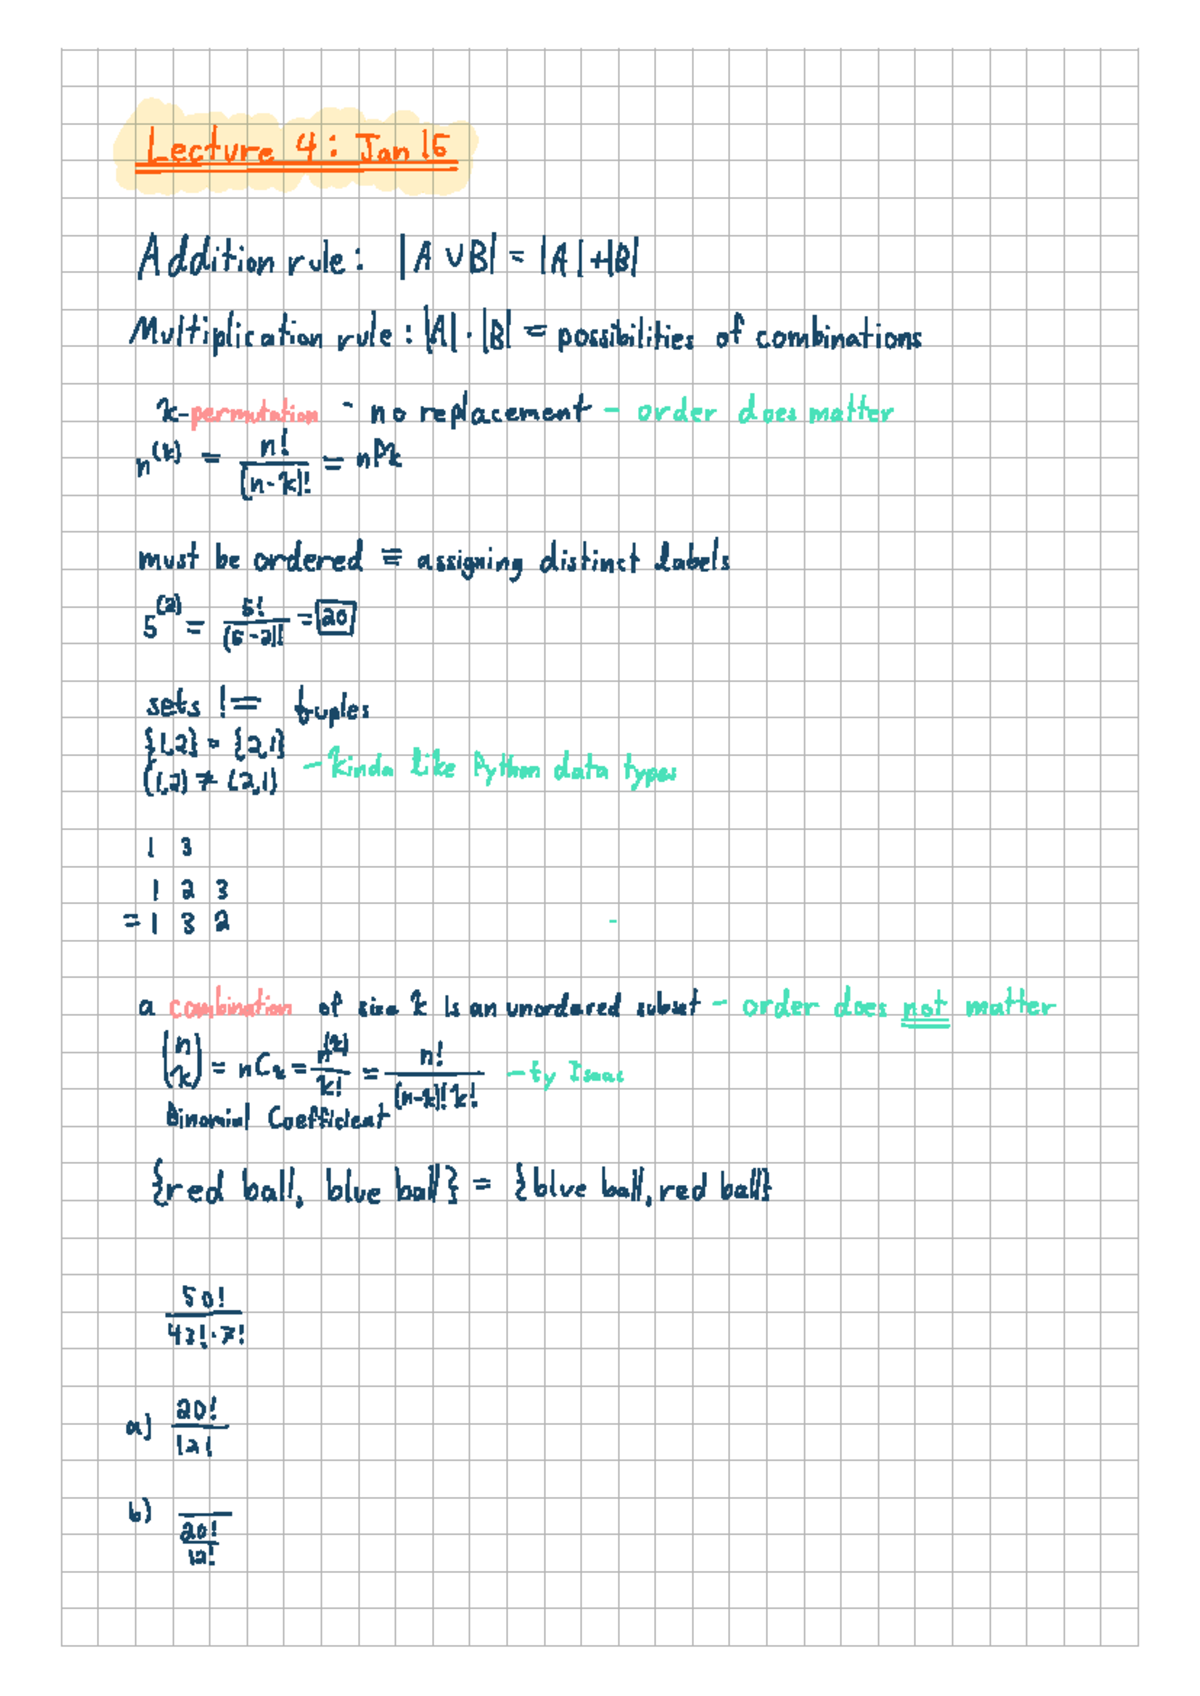 Lecture 4: Jan 15
Addition rule: |A ∪ B| = |A| + |B|
Multiplication rule: |A| · |B| = possibilities of combinations
k-permutation - no replacement - order does matter
n^(k) = n! / (n-k)! = nPk
must be ordered = assigning distinct labels
5^(2) = 5! / (5-2)! = 20
sets != tuples
{1,2} = {2,1}
(1,2) ≠ (2,1) - kinda like Python data types
1 3
1 2 3
= 1 3 2
a combination of size k is an unordered subset - order does not matter
(n k) = nCk = n^(k) / k! = n! / (n-k)! k! - ty Isaac
Binomial Coefficient
{red ball, blue ball} = {blue ball, red ball}
50! / 43! · 7!
a) 20! / 12!
b) 20! / 12!